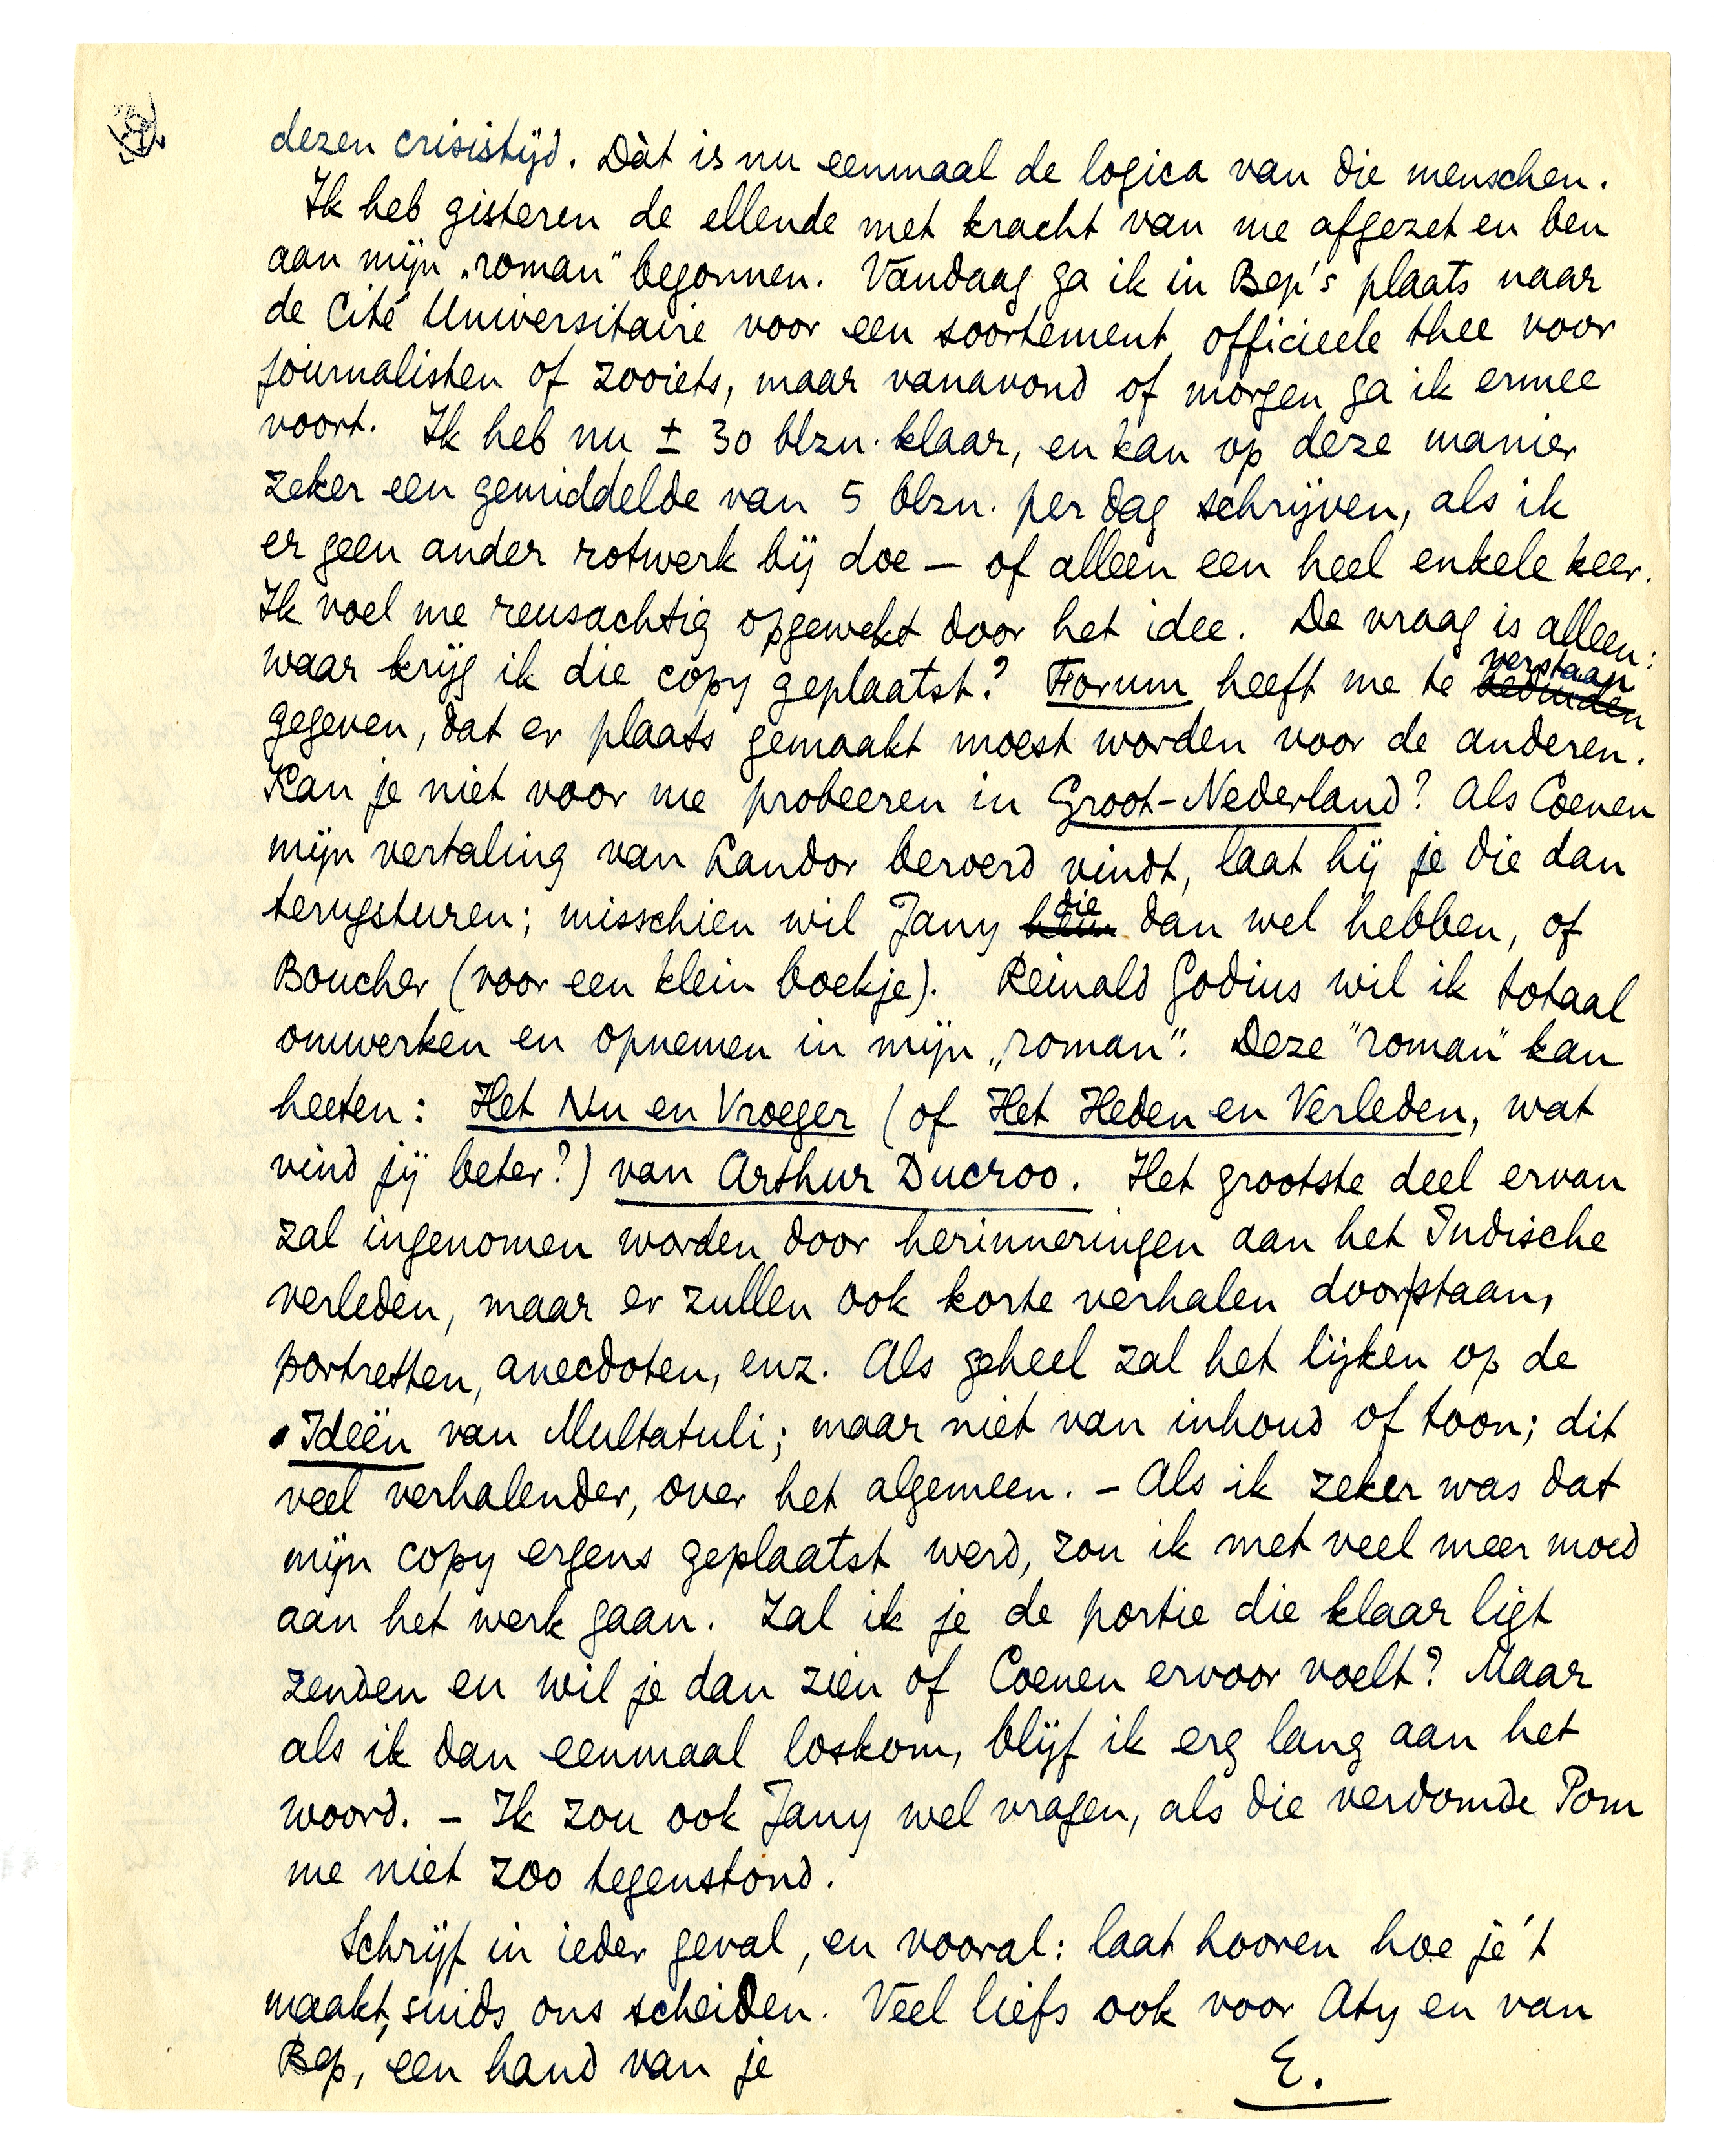 dezen crisistijd. Dàt is nu eenmaal de logica van die menschen.
Ik heb gisteren de ellende met kracht van me afgezet en ben
aan mijn „roman" begonnen. Vandaag ga ik in Bep's plaats naar
de Cité Universitaire voor een soortement officieele thee voor
journalisten of zooiets, maar vanavond of morgen ga ik ermee
voort. Ik heb nu ± 30 blzn. klaar, en kan op deze manier
zeker een gemiddelde van 5 blzn. per dag schrijven, als ik
er geen ander rotwerk bij doe — of alleen een heel enkele keer.
Ik voel me reusachtig opgewekt door het idee. De vraag is alleen:
waar krijg ik die copy geplaatst? Forum heeft me te verstaan
gegeven, dat er plaats gemaakt moest worden voor de anderen.
Kan je niet voor me probeeren in Groot-Nederland? Als Coenen
mijn vertaling van Landor beroerd vindt, laat hij je die dan
terugsturen; misschien wil Jany die dan wel hebben, of
Boucher (voor een klein boekje). Reinald Godius wil ik totaal
omwerken en opnemen in mijn „roman". Deze "roman" kan
heeten: Het Nu en Vroeger (of Het Heden en Verleden, wat
vind jij beter?) van Arthur Ducroo. Het grootste deel ervan
zal ingenomen worden door herinneringen aan het Indische
verleden, maar er zullen ook korte verhalen doorstaan,
portretten, anecdoten, enz. Als geheel zal het lijken op de
Ideën van Multatuli; maar niet van inhoud of toon; dit
veel verhalender, over het algemeen. — Als ik zeker was dat
mijn copy ergens geplaatst werd, zou ik met veel meer moed
aan het werk gaan. Zal ik je de portie die klaar ligt
zenden en wil je dan zien of Coenen ervoor voelt? Maar
als ik dan eenmaal loskom, blijf ik erg lang aan het
woord. — Ik zou ook Jany wel vragen, als die verdomde Pom
me niet zoo tegenstond.
Schrijf in ieder geval, en vooral: laat hooren hoe je 't
maakt, sinds ons scheiden. Veel liefs ook voor Aty en van
Bep, een hand van je
E.